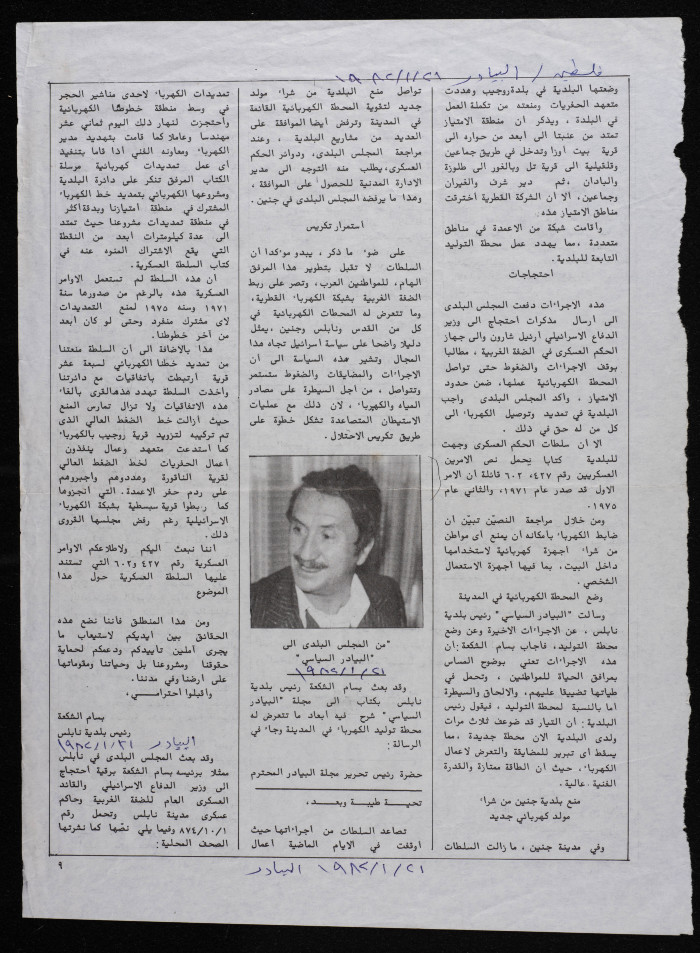 فلسطين / البيادر ٢١/١/١٩٨٢
وضعتها البلدية في بلدة روجيب وهددت
متعهد الحفريات ومنعته من تكملة العمل
في البلدة ، ويذكر ان منطقة الامتياز
تمتد من عنبتا الى ابعد من حواره الى
قرية بيت اوزا وتدخل في طريق جماعين
وقلقيلية الى قرية تل وبالغور الى طلوزة
والباذان ،ثم دير شرف والغيران
وجماعين، الا أن الشركة القطرية أخترقت
مناطق الامتياز هذه.
وأقامت شبكة من الاعمدة في مناطق
متعددة ،مما يهدد عمل محطة التوليد
التابعة للبلدية.
احتجاجات
هذه الاجراءات دفعت المجلس البلدى
الى ارسال مذكرات احتجاج الى وزير
الدفاع الاسرائيلي أرئيل شارون والى جهاز
الحكم العسكرى في الضفة الغربية ، مطالبا
بوقف الاجراءات والضغوط حتى تواصل
المحطة الكهربائية عملها، ضمن حدود
الامتياز . وأكد المجلس البلدى واجب
البلدية في تمديد وتوصيل الكهرباء الى
كل من له حق في ذلك .
الا أن سلطات الحكم العسكرى وجهت
للبلدية كتابا يحمل نص الامرين
العسكريين رقم ٤٢٧، ٦٠٢ قائلة أن الامر
الاول قد صدر عام ١٩٧١، والثاني عام
١٩٧٥.
ومن خلال مراجعة النصيّن تبيّن أن
ضابط الكهرباء بأمكانه أن يمنع أى مواطن
من شراء أجهزة كهربائية لاستخدامها
داخل البيت، بما فيها أجهزة الاستعمال
الشخصي.
وضع المحطة الكهربائية في المدينة
وسألت "البيادر السياسي" رئيس بلدية
نابلس ، عن الاجراءات الاخيرة وعن وضع
محطة التوليد، فأجاب بسام الشكعة:أن
هذه الاجراءات تعني بوضوح المساس
بمرافق الحياة للمواطنين ، وتحمل في
طياتها تضييقا عليهم، والالحاق والسيطرة
أما بالنسبة لمحطة التوليد ، فيقول رئيس
البلدية: أن التيار قد ضوعف ثلاث مرات
ولدى البلدية الان محطة جديدة ،مما
يسقط أى تبرير للمضايقة والتعرض لاعمال
الكهرباء، حيث أن الطاقة ممتازة والقدرة
الفنية عالية.
منع بلدية جنين من شراء
مولد كهربائي جديد
وفي مدينة جنين ، ما زالت السلطات
تواصل منع البلدية من شراء مولد
جديد لتقوية المحطة الكهربائية القائمة
في المدينة وترفض أيضا الموافقة على
العديد من مشاريع البلدية ، وعند
مراجعة المجلس البلدى، ودوائر الحكم
العسكرى،يطلب منه التوجه الى مدير
الادارة المدنية للحصول على الموافقة ،
وهذا ما يرفضه المجلس البلدى في جنين .
استمرار تكريس
على ضوء ما ذكر ، يبدو مؤكدا أن
السلطات لا تقبل بتطوير هذا المرفق
الهام، للمواطنين العرب، وتصر على ربط
الضفة الغربية بشبكة الكهرباء القطرية،
وما تتعرض له المحطات الكهربائية في
كل من القدس ونابلس وجنين ،يمثل
دليلا واضحا على سياسة اسرائيل تجاه هذا
المجال وتشير هذه السياسة الى أن
الاجراءات والمضايقات والضغوط ستستمر
وتتواصل ، من أجل السيطرة على مصادر
المياه والكهرباء ، لان ذلك مع عمليات
الاستيطان المتصاعدة تشكل خطوة على
طريق تكريس الاحتلال .
"من المجلس البلدى الى
"البيادر السياسي"
٢١/١/١٩٨٢
وقد بعث بسام الشكعة رئيس بلدية
نابلس بكتاب الى مجلة "البيادر
السياسي" شرح فيه أبعاد ما تتعرض له
محطة توليد الكهرباء في المدينة وجاء في
الرسالة :
حضرة رئيس تحرير مجلة البيادر المحترم
تحيــة طيبـة وبعــد،
تصاعد السلطات من اجراءاتها حيث
أوقفت في الايام الماضية أعمال
تمديدات الكهرباء لاحدى مناشير الحجر
في وسط منطقة خطوطنا الكهربائية
وأحتجزت لنهار ذلك اليوم ثماني عشر
مهندسا وعاملا كما قامت بتهديد مدير
الكهرباء ومعاونه الفني أذا قاما بتنفيذ
أى عمل تمديدات كهربائية مرسلة
الكتاب المرفق تنكر على دائرة البلدية
ومشروعها الكهربائي بتمديد خط الكهرباء
المشترك في منطقة أمتيازنا وبدقة أكثر
في منطقة تمديدات مشروعنا حيث تمتد
الى عدة كيلومترات أبعد من النقطة
التي يقع الاشتراك المنوه عنه في
كتاب السلطة العسكرية.
أن هذه السلطة لم تستعمل الاوامر
العسكرية هذه بالرغم من صدورها سنة
١٩٧١ وسنه ١٩٧٥ لمنع التمديدات
لاى مشترك منفرد وحتى لو كان أبعد
من آخر خطوطنا.
هذا بالاضافة الى أن السلطة منعتنا
من تمديد خطنا الكهربائي لسبعة عشر
قرية أرتبطت بأتفاقيات مع دائرتنا
وأخذت السلطة تهدد هذه القرى بألغاء
هذه الاتفاقيات ولا تزال تمارس المنع
حيث أزالت خط الضغط العالي الذى
تم تركيبه لتزويد قرية روجيب بالكهرباء
كما أستدعت متعهد وعمال ينفذون
أعمال الحفريات لخط الضغط العالي
لقرية الناقورة وهددوهم وأجبروهم
على ردم حفر الاعمدة. التي أنجزوها
كما ربطوا قرية سبسطية بشبكة الكهرباء
الاسرائيلية رغم رفض مجلسها القروى
ذلك .
أننا نبعث اليكم ولاطلاعكم الاوامر
العسكرية رقم ٤٢٧ و٦٠٢ التي تستند
عليها السلطة العسكرية حول هذا
الموضوع
ومن هذا المنطلق فأننا نضع هذه
الحقائق بين أيديكم لاستيعاب ما
يجرى آملين تأييدكم ودعمكم لحماية
حقوقنا ومشروعنا بل وحياتنا ومقوماتها
على أرضنا وفي مدننا.
وأقبلوا احترامــي،
بسام الشكعة
رئيس بلدية نابلس
البيادر ٢١/١/١٩٨٢
وقد بعث المجلس البلدى في نابلس
ممثلا برئيسه بسام الشكعة برقية احتجاج
الى وزير الدفاع الاسرائيلي والقائد
العسكرى العام للضفة الغربية وحاكم
عسكرى مدينة نابلس وتحمل رقم
٨٧٤/١٠/١ وفيما يلي نصّها كما نشرتها
الصحف المحلية:
٩
٢١/١/١٩٨٢ البيادر